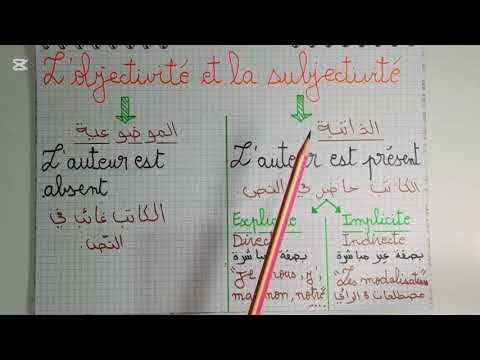 L'objectivité et la subjectivité
الموضوعية
L'auteur est
absent
الكاتب غائب في
النص
الذاتية
L'auteur est présent
الكاتب حاضر في النص.
Explicite
Directe
بصفة مباشرة
"Je, nous, j',
ma, mon, notre"
Implicite
Indirecte
بصفة غير مباشرة
"Les modalisateu
مصطلحات الرأي